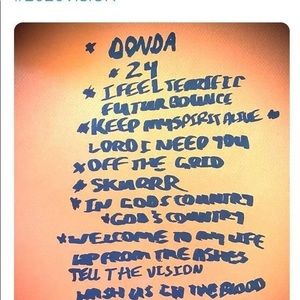 * DONDA
* 24
* I FEEL TERRIFIC
FUTUR BOUNCE
*KEEP MY SPIRIT ALIVE *
LORD I NEED YOU
* OFF THE GRID
* SKURRR
* IN GODS COUNTRY
*GOD'S COUNTRY
*WELCOME TO MY LIFE
UP FROM THE ASHES
TELL THE VISION
WASH US IN THE BLOOD